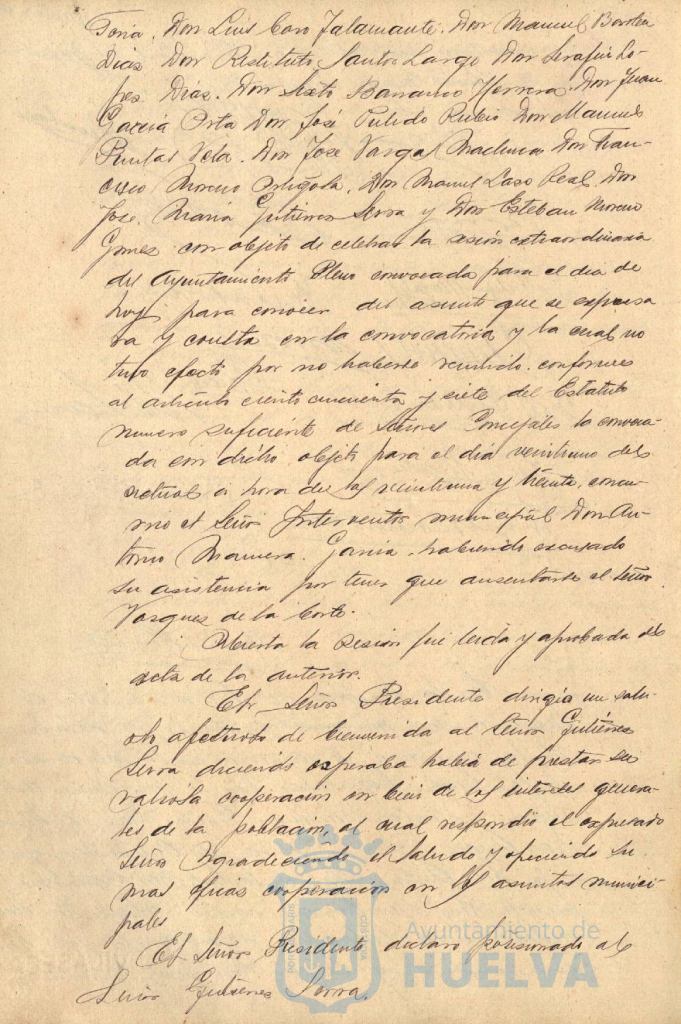 Don Luis Coro Jalamante. Don Manuel
Dias Don Restituto Santos Largo Don Serafin Lo-
pes Dias. Don Sixto Barranco Herrera. Don Juan
Garcia Orta Don José Pulido Rubio Don Manuel
Puntas Vela. Don Jose Vargas Don Fran-
cisco Moreno Ortigosa. Don Manuel Laso Real. Don
Jose Maria Gutierres Serra y Don Esteban Moreno
Gomes con objeto de celebrar la sesión extraordinaria
del Ayuntamiento Pleno convocada para el dia de
hoy para conocer del asunto que se expresa
ra y consta en la convocatoria y la cual no
tuvo efecto por no haberse reunido conforme
al articulo ciento cincuenta y siete del Estatuto
numero suficiente de Señores Concejales la convoca-
da con dicho objeto para el dia veintiuno del
actual a hora de las veintiuna y treinta, concu-
rrio el Señor Interventor municipal Don An-
tonio Garcia. habiendo excusado
su asistencia por tener que ausentarse el Señor
Vasques de la Corte.
Abierta la sesion fue leida y aprobada el
acta de la anterior.
El Señor Presidente dirigio un salu-
do afectuoso de bienvenida al Señor Gutierres
Serra diciendo esperaba habia de prestar su
valiosa cooperacion en bien de los intereses genera-
les de la poblacion, al cual respondio el expresado
Señor agradeciendo el saludo y ofreciendo su
mas cooperacion en los asuntos munici-
pales
El Señor Presidente declaro posesionado al
Señor Gutierres Serra.
Ayuntamiento de
HUELVA